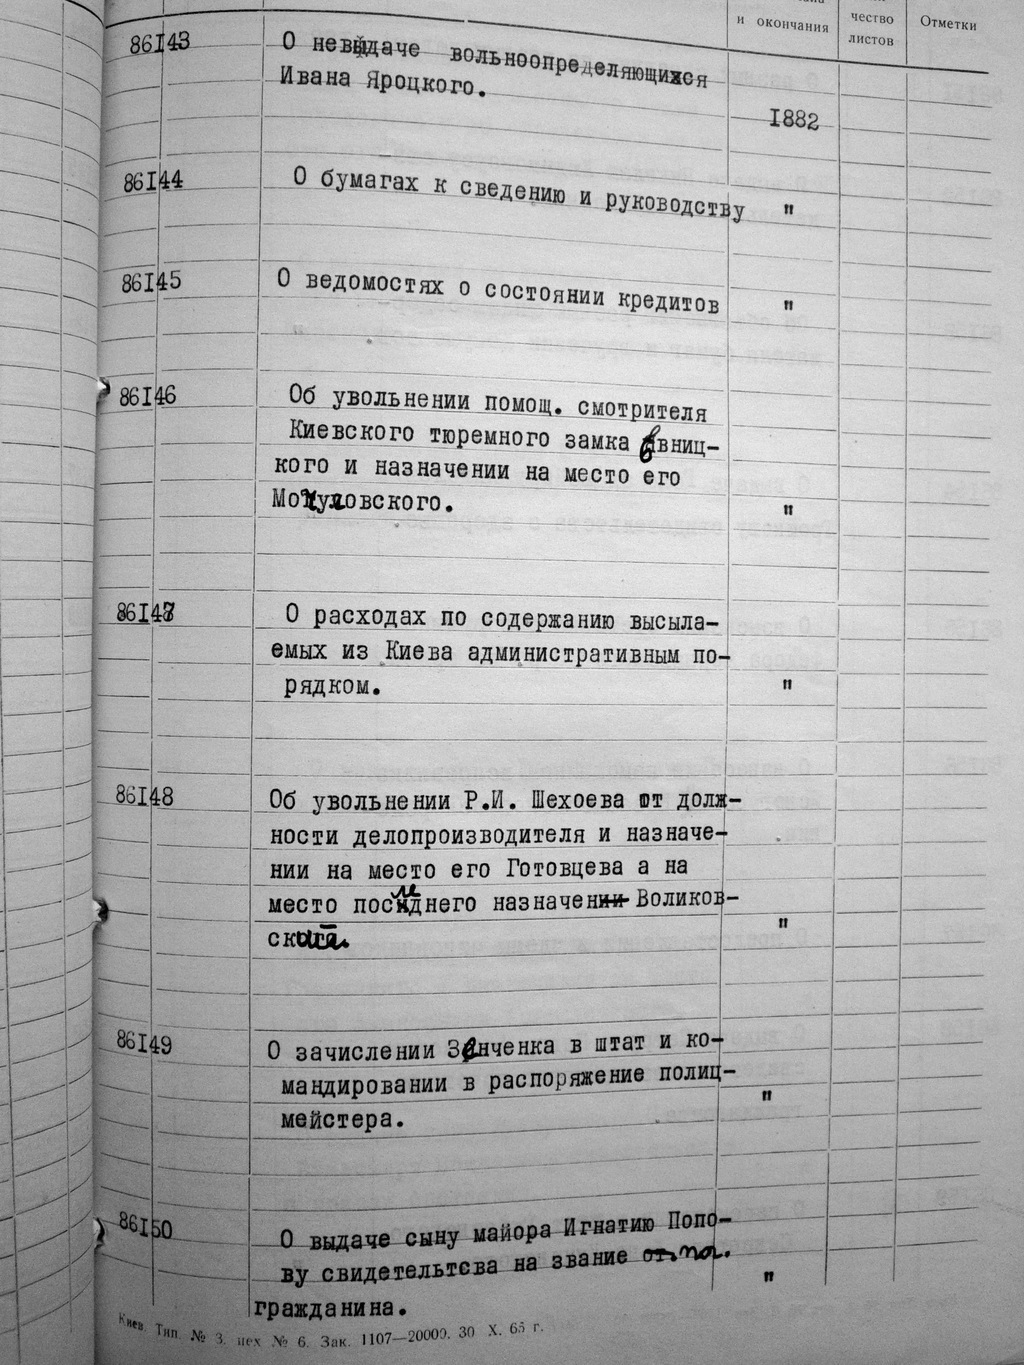 и окончания
чество
листов
Отметки
86I43
О невыдаче вольноопределяющихся
Ивана Яроцкого.
I882
86I44
О бумагах к сведению и руководству "
86I45
О ведомостях о состоянии кредитов "
86I46
Об увольнении помощ. смотрителя
Киевского тюремного замка
кого и назначении на место его
"
86I47
О расходах по содержанию высыла-
емых из Киева административным по-
рядком. "
86I48
Об увольнении Р.И. Шехоева от долж-
ности делопроизводителя и назначе-
нии на место его Готовцева а на
место последнего назначен Воликов-
"
86I49
О зачислении Зенченка в штат и ко-
мандировании в распоряжение полиц-
мейстера. "
86I50
О выдаче сыну майора Игнатию Попо-
ву свидетельтсва на звание
"
гражданина.
Киев. Тип. № 3. цех № 6. Зак. 1107—20000. 30 X. 65 г.